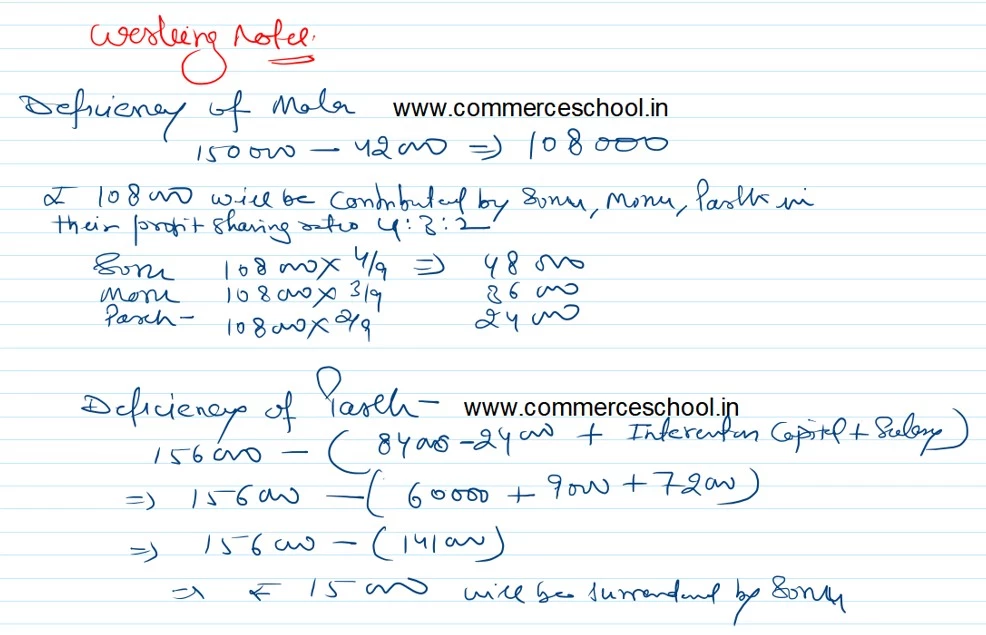 Working Notes.
Deficiency of Mala www.commerceschool.in
150000 - 42000 => 108000
₹ 108000 will be contributed by Sonu, Monu, Parth in
their profit sharing ratio 4:3:2
Sonu 108000 x 4/9 => 48000
Monu 108000 x 3/9 36000
Parth - 108000 x 2/9 24000
Deficiency of Parth - www.commerceschool.in
156000 - (84000 - 24000 + Interest on Capital + Salary)
=> 156000 - (60000 + 9000 + 72000)
=> 156000 - (141000)
=> ₹ 15000 will be surrendered by Sonu